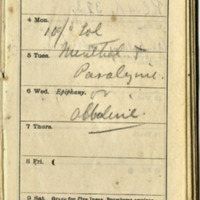 4 Mon.
10% sol
5 Tues. Menthol &
Paralyne.
6 Wed. Epiphany. or
Albolene.
7 Thurs.
8 Fri.
9 Sat.